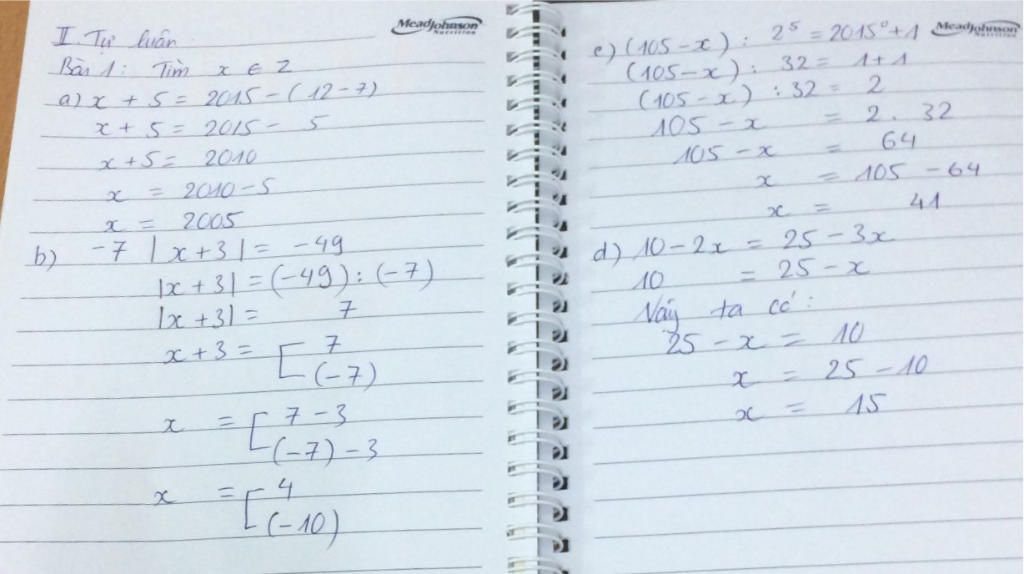 MeadJohnson
Nutrition
II. Tự luận
Bài 1: Tìm x ∈ Z
a) x + 5 = 2015 - (12 - 7)
x + 5 = 2015 - 5
x + 5 = 2010
x = 2010 - 5
x = 2005
b) -7 |x + 3| = -49
|x + 3| = (-49) : (-7)
|x + 3| = 7
x + 3 = [ 7
(-7)
x = [ 7 - 3
(-7) - 3
x = [ 4
(-10)
MeadJohnson
Nutrition
c) (105 - x) : 2⁵ = 2015⁰ + 1
(105 - x) : 32 = 1 + 1
(105 - x) : 32 = 2
105 - x = 2 . 32
105 - x = 64
x = 105 - 64
x = 41
d) 10 - 2x = 25 - 3x
10 = 25 - x
Vậy ta có:
25 - x = 10
x = 25 - 10
x = 15